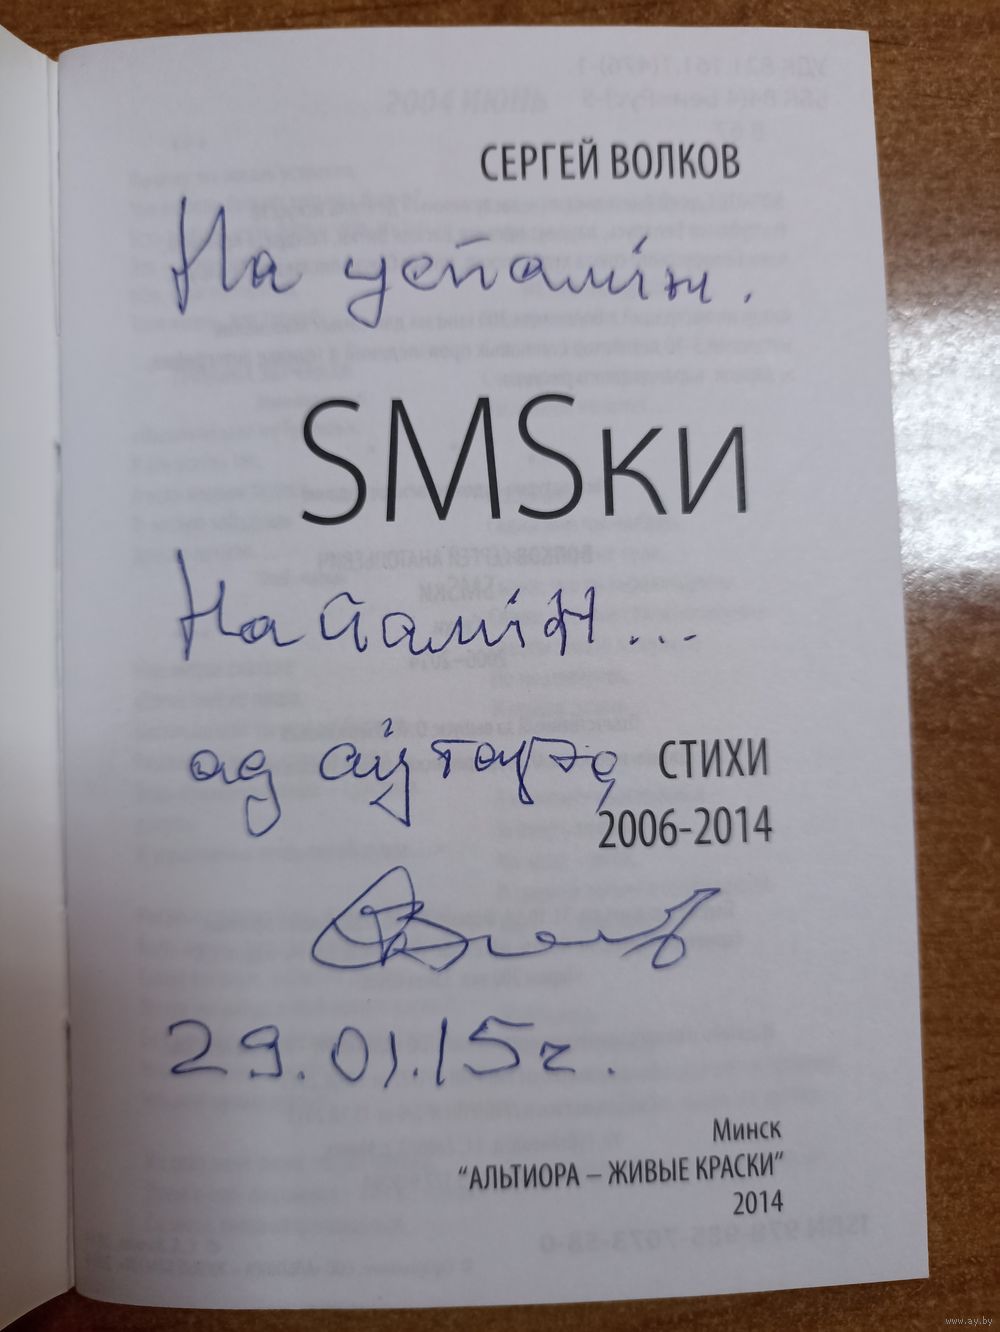 СЕРГЕЙ ВОЛКОВ
На успамін.
SMSки
На памін...
ад аўтара
СТИХИ
2006-2014
29.01.15г.
Минск
“АЛЬТИОРА – ЖИВЫЕ КРАСКИ”
2014
www.ay.by